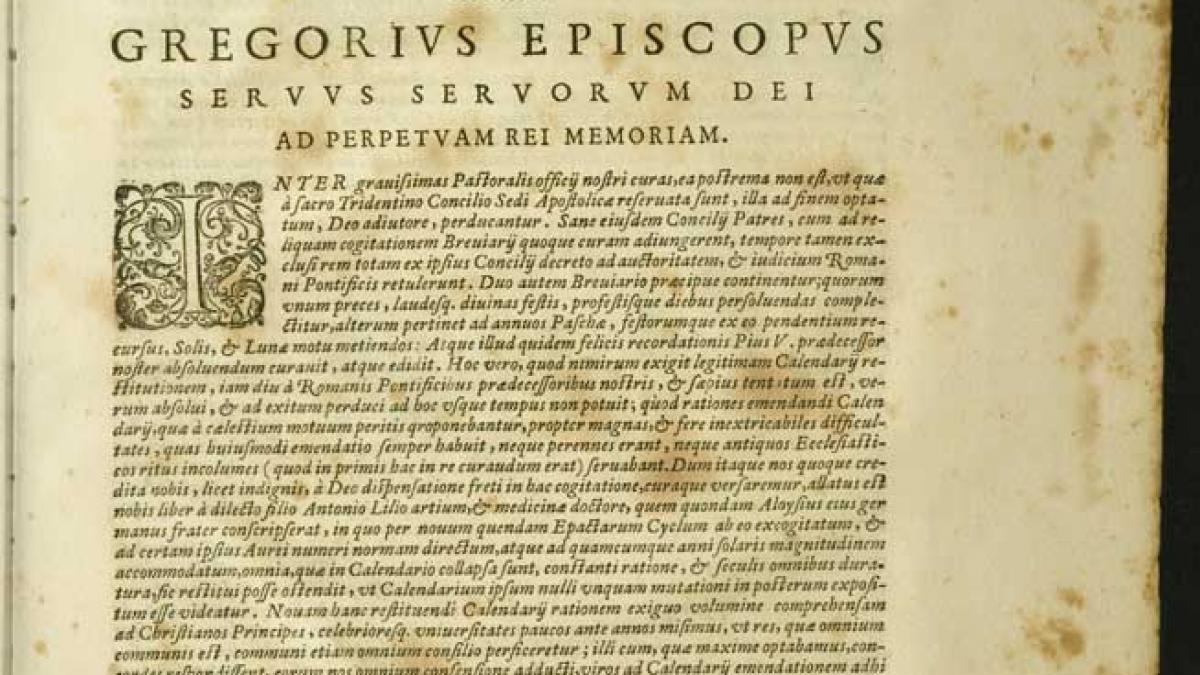 GREGORIVS EPISCOPVS
SERVVS SERVORVM DEI
AD PERPETVAM REI MEMORIAM.
INTER grauissimas Pastoralis officij nostri curas, ea postrema non est, vt quæ
à sacro Tridentino Concilio Sedi Apostolicæ reseruata sunt, illa ad finem opta-
tum, Deo adiutore, perducantur. Sane eiusdem Concilij Patres, cum ad re-
liquam cogitationem Breuiarij quoque curam adiungerent, tempore tamen ex-
clusi rem totam ex ipsius Concilij decreto ad auctoritatem, & iudicium Roma-
ni Pontificis retulerunt. Duo autem Breuiario præcipue continentur; quorum
vnum preces, laudesq. diuinas festis, profestisque diebus persoluendas comple-
ctitur, alterum pertinet ad annuos Paschæ, festorumque ex eo pendentium re-
cursus, Solis, & Lunæ motu metiendos: Atque illud quidem felicis recordationis Pius V. prædecessor
noster absoluendum curauit, atque edidit. Hoc vero, quod nimirum exigit legitimam Calendarij re-
stitutionem, iam diu à Romanis Pontificibus prædecessoribus nostris, & sæpius tentatum est, ve-
rum absolui, & ad exitum perduci ad hoc vsque tempus non potuit; quod rationes emendandi Calen
darij, quæ à cælestium motuum peritis proponebantur, propter magnas, & fere inextricabiles difficul-
tates, quas huiusmodi emendatio semper habuit, neque perennes erant, neque antiquos Ecclesiasti-
cos ritus incolumes (quod in primis hac in re curaudum erat) seruabant. Dum itaque nos quoque cre-
dita nobis, licet indignis, à Deo dispensatione freti in hac cogitatione, curaque versaremur, allatus est
nobis liber à dilecto filio Antonio Lilio artium, & medicinæ doctore, quem quondam Aloysius eius ger
manus frater conscripserat, in quo per nouum quendam Epactarum Cyclum ab eo excogitatum, &
ad certam ipsius Aurei numeri normam directum, atque ad quamcumque anni solaris magnitudinem
accommodatum, omnia, quæ in Calendario collapsa sunt, constanti ratione, & seculis omnibus dura-
tura, sic restitui posse ostendit, vt Calendarium ipsum nulli vnquam mutationi in posterum exposi-
tum esse videatur. Nouam hanc restituendi Calendarij rationem exiguo volumine comprehensam
ad Christianos Principes, celebrioresq. vniuersitates paucos ante annos misimus, vt res, quæ omnium
communis est, communi etiam omnium consilio perficeretur; illi cum, quæ maxime optabamus, con-
eorum nos omnium consensione adducti, viros ad Calendarij emendationem adhi